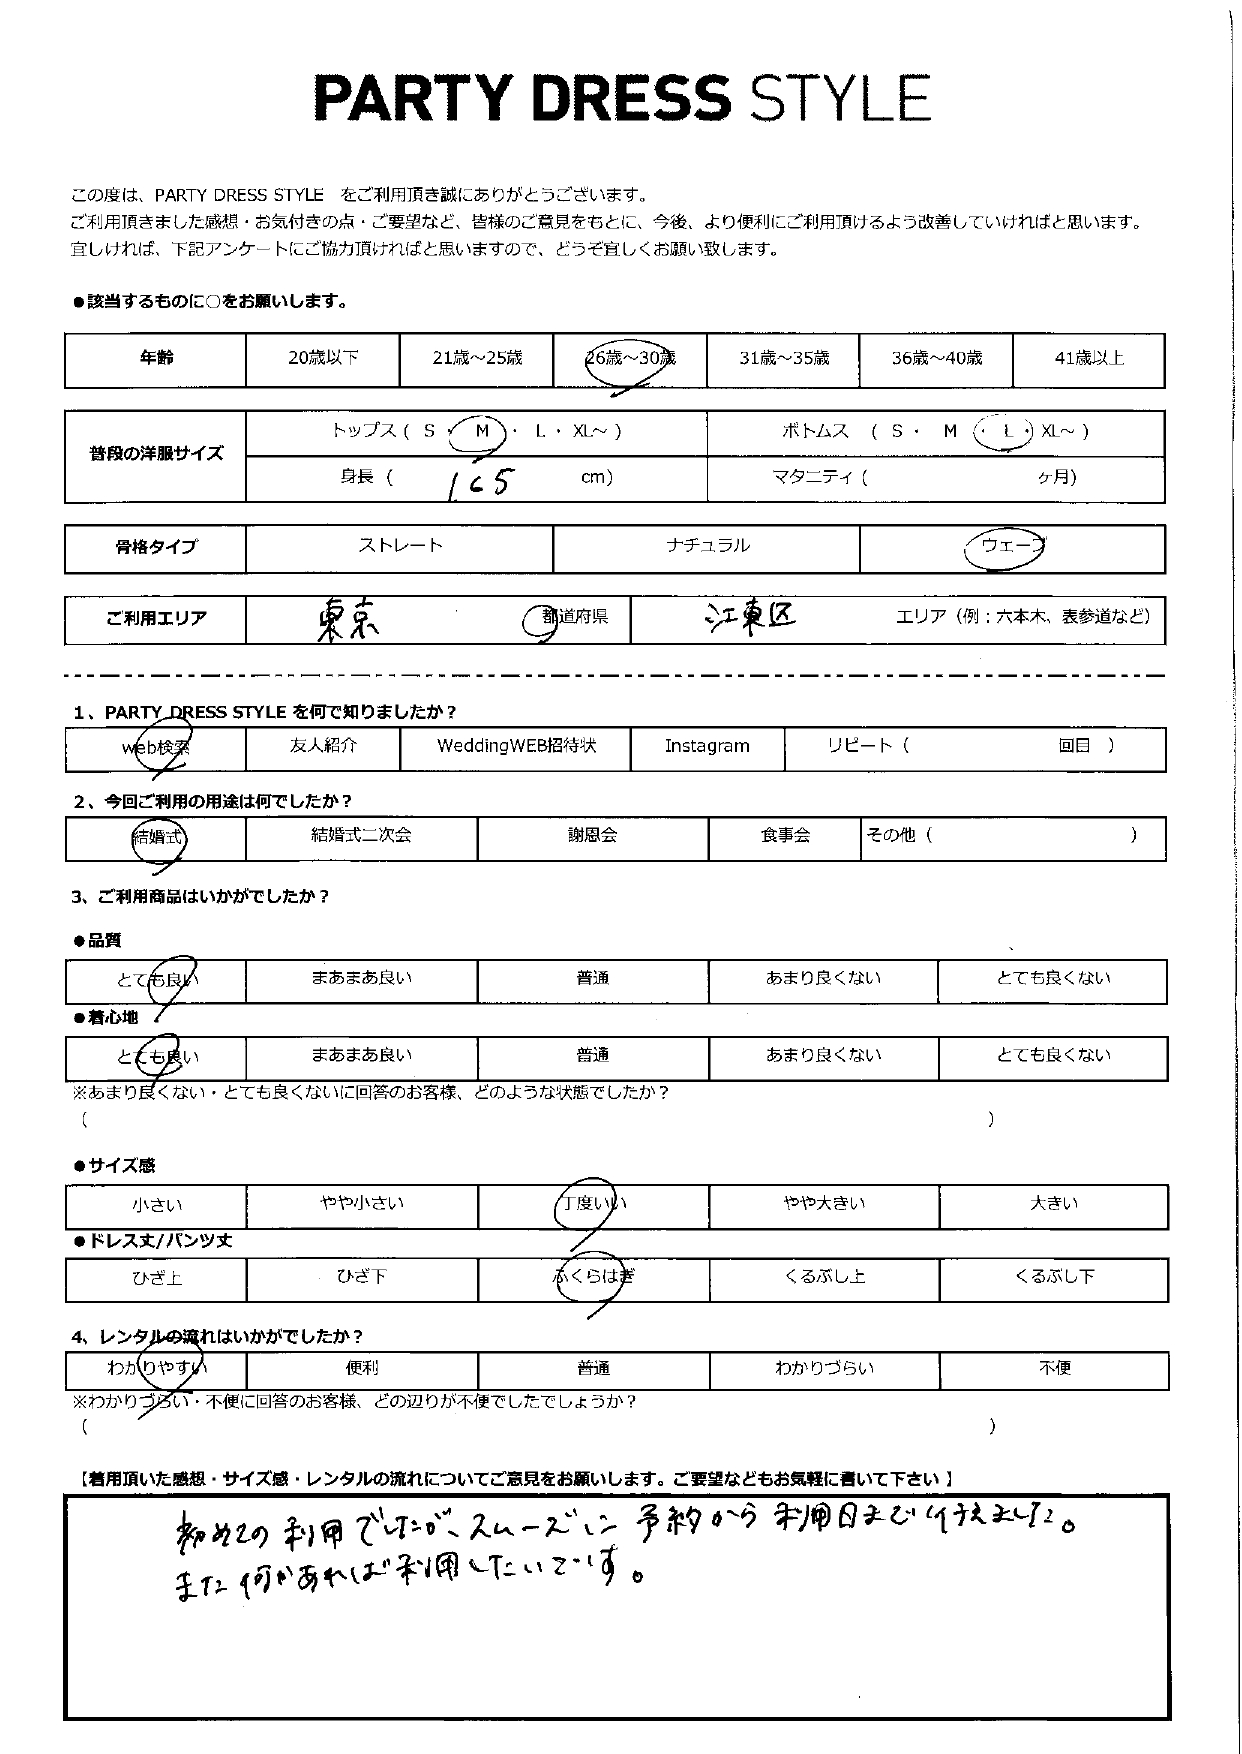 PARTY DRESS STYLE
この度は、PARTY DRESS STYLE をご利用頂き誠にありがとうございます。
ご利用頂きました感想・お気付きの点・ご要望など、皆様のご意見をもとに、今後、より便利にご利用頂けるよう改善していければと思います。
宜しければ、下記アンケートにご協力頂ければと思いますので、どうぞ宜しくお願い致します。
●該当するものに○をお願いします。
年齢 20歳以下 21歳～25歳 26歳～30歳 31歳～35歳 36歳～40歳 41歳以上
普段の洋服サイズ
トップス ( S ・ M ・ L ・ XL～ ) ボトムス ( S ・ M ・ L ・ XL～ )
身長 ( 165 cm) マタニティ ( ヶ月)
骨格タイプ ストレート ナチュラル ウェーブ
ご利用エリア 東京 都道府県 江東区 エリア（例：六本木、表参道など）
1、PARTY DRESS STYLE を何で知りましたか？
web検索 友人紹介 WeddingWEB招待状 Instagram リピート ( 回目 )
2、今回ご利用の用途は何でしたか？
結婚式 結婚式二次会 謝恩会 食事会 その他 ( )
3、ご利用商品はいかがでしたか？
●品質
とても良い まあまあ良い 普通 あまり良くない とても良くない
●着心地
とても良い まあまあ良い 普通 あまり良くない とても良くない
※あまり良くない・とても良くないに回答のお客様、どのような状態でしたか？
( )
●サイズ感
小さい やや小さい 丁度いい やや大きい 大きい
●ドレス丈/パンツ丈
ひざ上 ひざ下 ふくらはぎ くるぶし上 くるぶし下
4、レンタルの流れはいかがでしたか？
わかりやすい 便利 普通 わかりづらい 不便
※わかりづらい・不便に回答のお客様、どの辺りが不便でしたでしょうか？
( )
【着用頂いた感想・サイズ感・レンタルの流れについてご意見をお願いします。ご要望などもお気軽に書いて下さい 】
初めての利用でしたが、スムーズに予約から利用日まで行えました。
また何かあれば利用したいです。